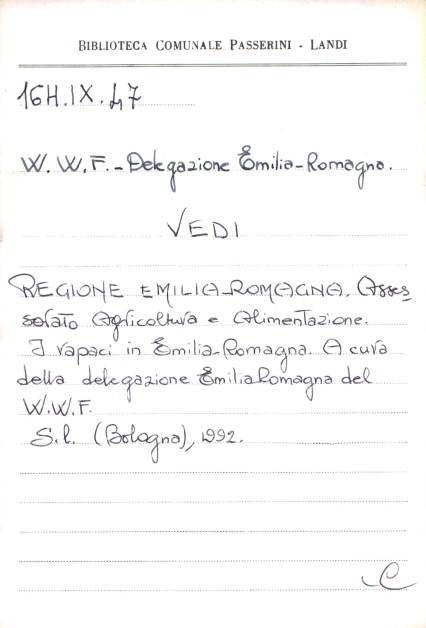 BIBLIOTECA COMUNALE PASSERINI - LANDI
16H.IX.47
W.W.F. - Delegazione Emilia-Romagna.
VEDI
REGIONE EMILIA-ROMAGNA. Asses
sorato Agricoltura e Alimentazione.
I rapaci in Emilia-Romagna. A cura
della delegazione EmiliaRomagna del
W.W.F.
S.l. (Bologna), 1992.
C